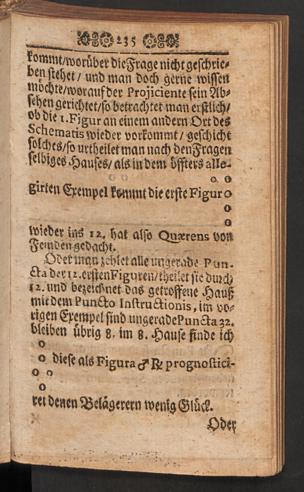 235
kommt/worüber die Frage nicht geschrie-
ben stehet / und man doch gerne wissen
möchte/worauf der Projiciente sein Ab-
sehen gerichtet/so betrachtet man erstlich/
ob die 1. Figur an einem andern Ort des
Schematis wieder vorkommt / geschicht
solches/so urtheilet man nach den Fragen
selbiges Hauses/als in dem öffters alle-
girten Exempel kommt die erste Figur
wieder ins 12. hat also Quærens von
Feinden gedacht.
Oder man zehlet alle ungerade Pun-
cta der 12. ersten Figuren/theilet sie durch
12. und bezeichnet das getroffene Hauß
mit dem Puncto Instructionis, im vo-
rigen Exempel sind ungerade Puncta 32.
bleiben übrig 8. im 8. Hause finde ich
diese als Figura ♂ ℞ prognostici-
ret denen Belägerern wenig Glück.
Oder